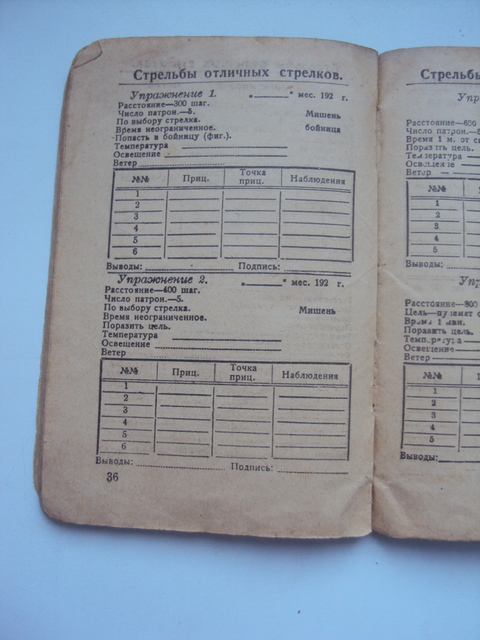 Стрельбы отличных стрелков.
Упражнение 1. "_____" мес. 192 г.
Расстояние—300 шаг.
Число патрон.—5. Мишень
По выбору стрелка.
Время неограниченное. бойница
Попасть в бойницу (фиг.).
Температура
Освещение
Ветер
№№ Приц. Точка приц. Наблюдения
1
2
3
4
5
6
Выводы: Подпись:
Упражнение 2. "_____" мес. 192 г.
Расстояние—400 шаг.
Число патрон.—5.
По выбору стрелка. Мишень
Время неограниченное.
Поразить цель.
Температура
Освещение
Ветер
№№ Приц. Точка приц. Наблюдения
1
2
3
4
5
6
Выводы: Подпись:
36
Стрельбы
Упр
Расстояние—600
Число патрон.—
Время 1 м. от
Поразить цель.
Температура
Освещение
Ветер
№№
1
2
3
4
5
Выводы:
Уп
Расстояние—800
Цель—
Время
Поразить цель.
Температура
Освещение
Ветер
№№
1
2
3
4
5
Выводы: